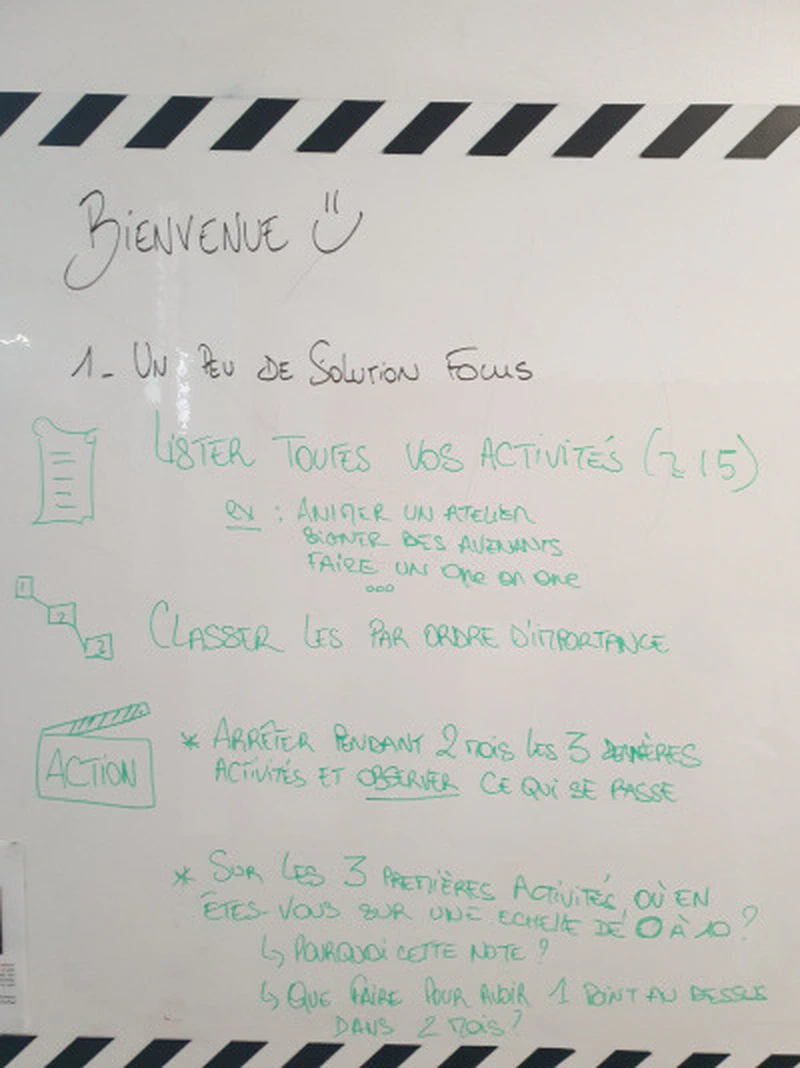 BIENVENUE
1- UN PEU DE SOLUTION FOCUS
LISTER TOUTES VOS ACTIVITÉS (≥ 15)
ex : ANIMER UN ATELIER
SIGNER DES AVENANTS
FAIRE UN One on One
...
1
2
3
CLASSER LES PAR ORDRE D'IMPORTANCE
ACTION
* ARRÊTER PENDANT 2 MOIS LES 3 DERNIÈRES
ACTIVITÉS ET OBSERVER CE QUI SE PASSE
* SUR LES 3 PREMIÈRES ACTIVITÉS, OÙ EN
ÊTES-VOUS SUR UNE ECHELLE DE 0 À 10 ?
↳ POURQUOI CETTE NOTE ?
↳ QUE FAIRE POUR AVOIR 1 POINT AU DESSUS
DANS 2 MOIS ?